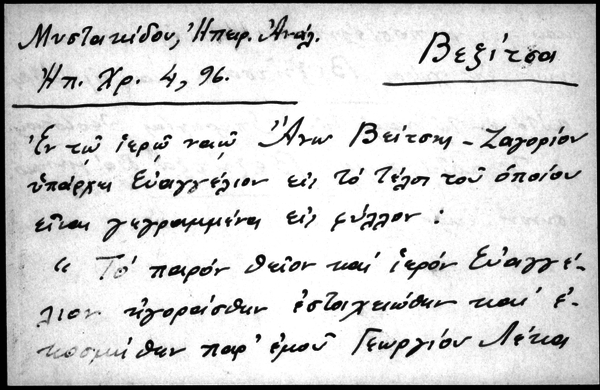 Μυστακίδου, Ἠπειρ. Ἀνάλ.
Βεζίτσα
Ἠπ. Χρ. 4, 96.
Ἐν τῷ ἱερῷ ναῷ Ἄνω Βεΐτσης - Ζαγορίου
ὑπάρχει Εὐαγγέλιον εἰς τό τέλος τοῦ ὁποίου
εἶναι γεγραμμένα εἰς φύλλον :
" Τό παρόν θεῖον καί ἱερόν Εὐαγγέ-
λιον ἠγοράσθην ἐστοιχειώθην καί ἐ-
κοσμήθην παρ' ἐμοῦ Γεωργίου Λέκα